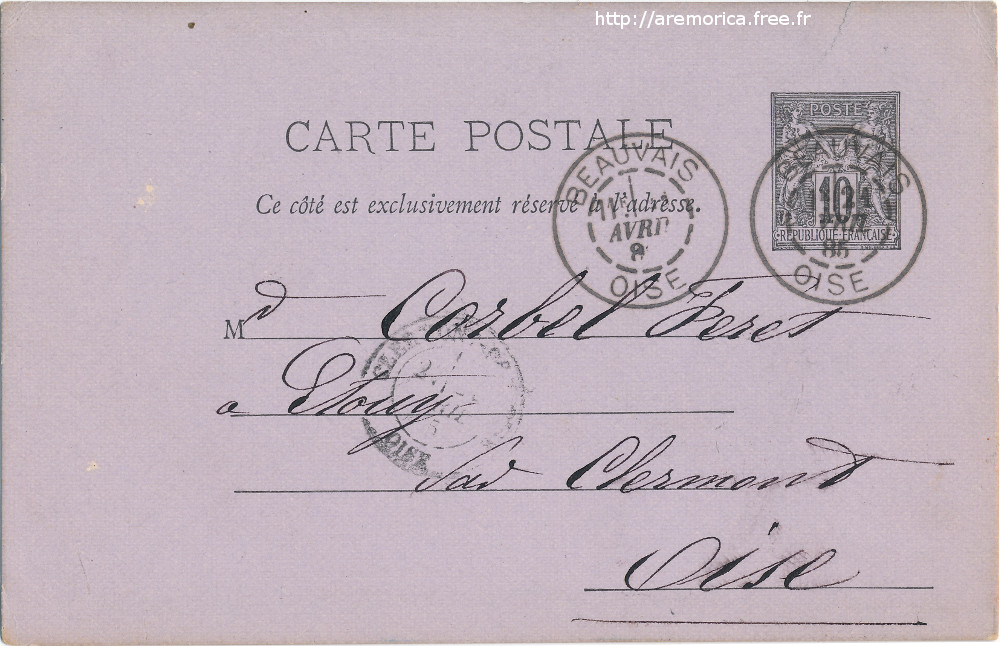 http://aremorica.free.fr
POSTE
10
RÉPUBLIQUE FRANÇAISE
CARTE POSTALE
BEAUVAIS
AVRIL
8
OISE
BEAUVAIS
85
OISE
Ce côté est exclusivement réservé à l'adresse.
M d Corbel Feret
a Etouy
OISE
Clermont
Oise